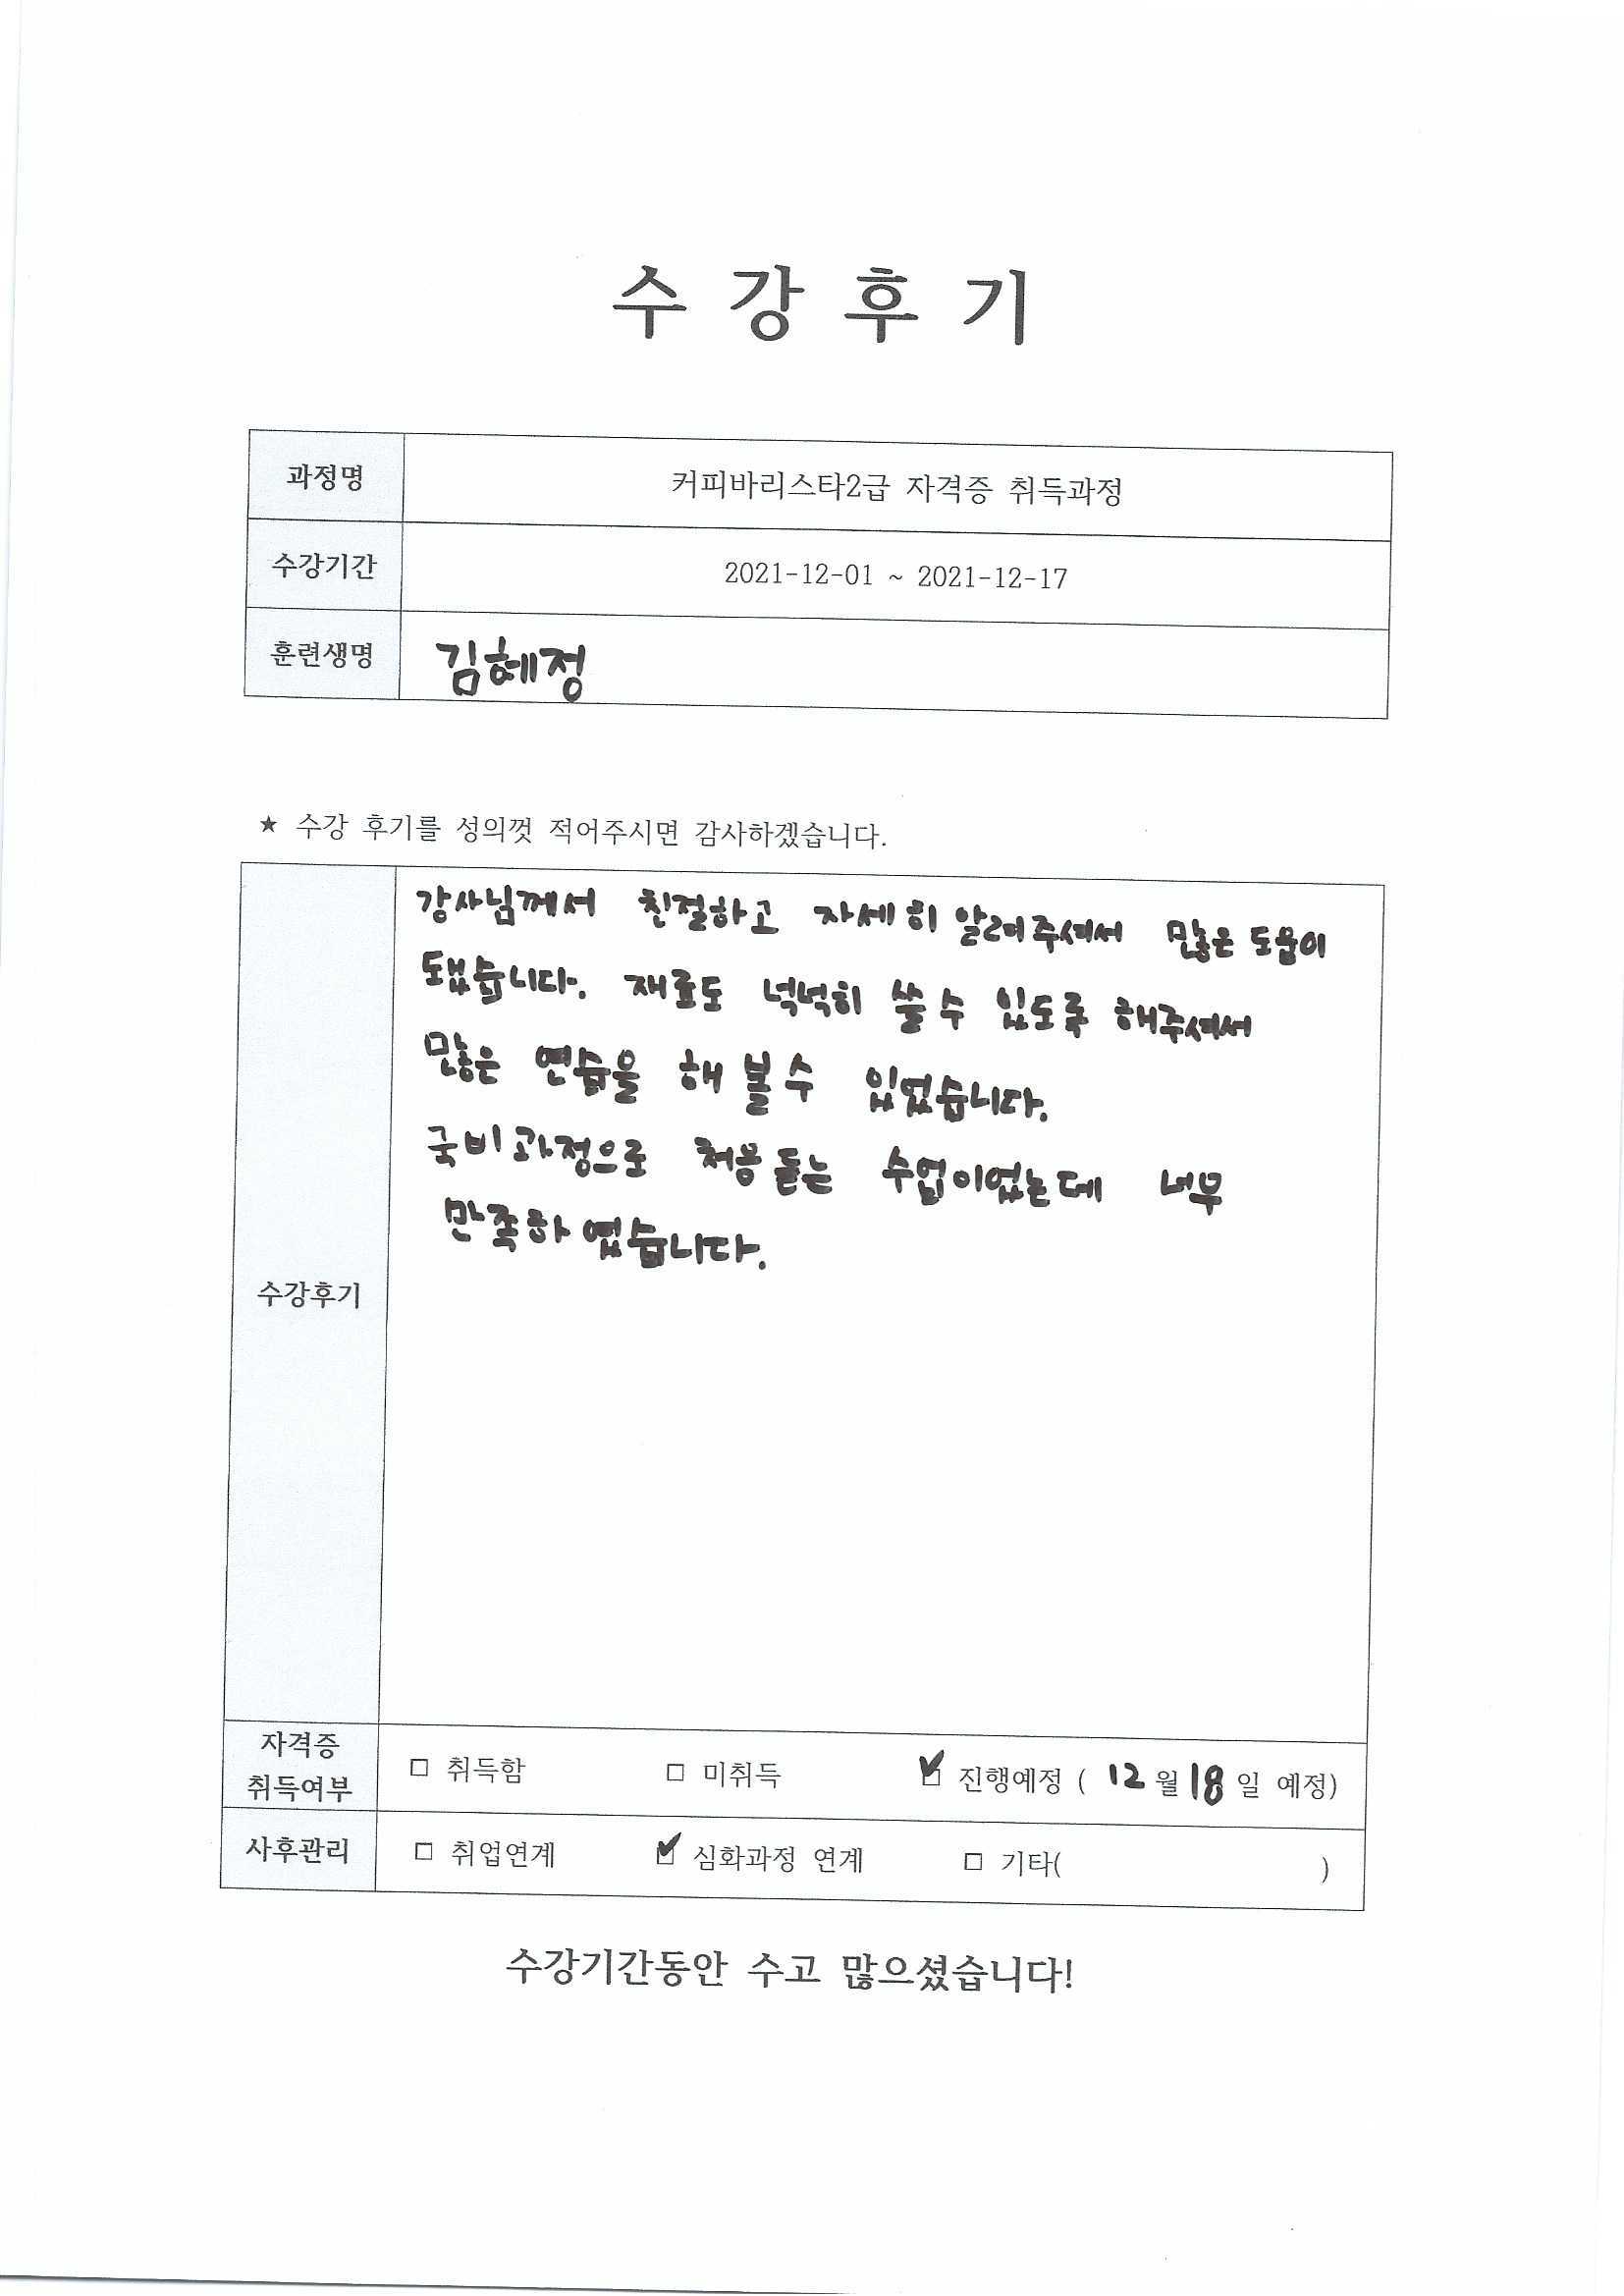 수 강 후 기
과정명 커피바리스타2급 자격증 취득과정
수강기간 2021-12-01 ~ 2021-12-17
훈련생명 김혜정
★ 수강 후기를 성의껏 적어주시면 감사하겠습니다.
강사님께서 친절하고 자세히 알려주셔서 많은 도움이
됐습니다. 재료도 넉넉히 쓸 수 있도록 해주셔서
많은 연습을 해 볼 수 있었습니다.
국비과정으로 처음 듣는 수업이었는데 너무
만족하였습니다.
수강후기
자격증
취득여부
□ 취득함 □ 미취득 ☑ 진행예정 ( 12 월 18 일 예정)
사후관리 □ 취업연계 ☑ 심화과정 연계 □ 기타( )
수강기간동안 수고 많으셨습니다!